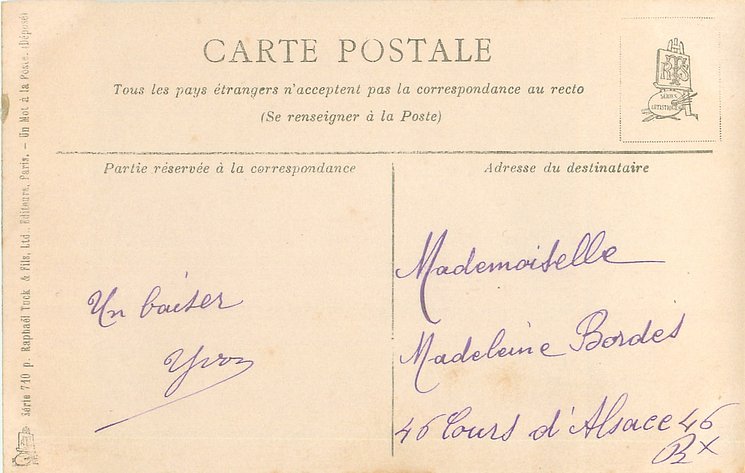 CARTE POSTALE
Tous les pays étrangers n'acceptent pas la correspondance au recto
(Se renseigner à la Poste)
RTS
SÉRIES
ARTISTIQUES
Partie réservée à la correspondance
Adresse du destinataire
Un baiser
Yvon
Mademoiselle
Madeleine Bordes
46 Cours d'Alsace 46
Bx
Série 710 p. Raphaël Tuck & Fils, Ltd., Editeurs, Paris. — Un Mot à la Poste. (Déposé)